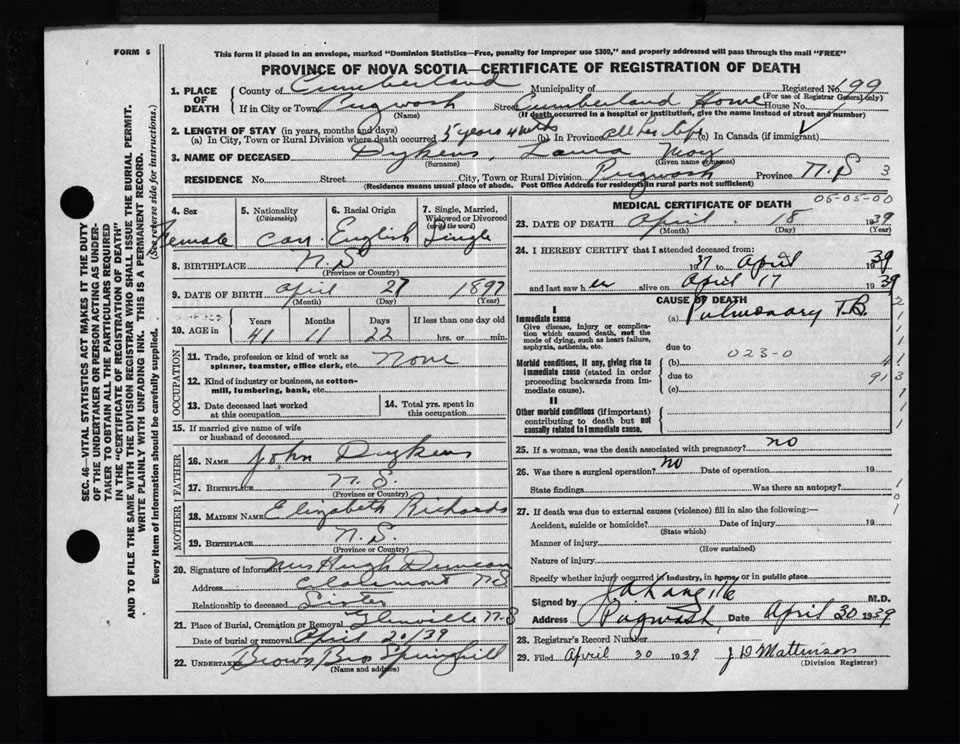 FORM 6
This form if placed in an envelope, marked "Dominion Statistics—Free, penalty for improper use $300," and properly addressed will pass through the mail "FREE"
PROVINCE OF NOVA SCOTIA—CERTIFICATE OF REGISTRATION OF DEATH
SEC. 46—VITAL STATISTICS ACT MAKES IT THE DUTY
OF THE UNDERTAKER OR PERSON ACTING AS UNDER-
TAKER TO OBTAIN ALL THE PARTICULARS REQUIRED
IN THE "CERTIFICATE OF REGISTRATION OF DEATH"
AND TO FILE THE SAME WITH THE DIVISION REGISTRAR WHO SHALL ISSUE THE BURIAL PERMIT.
WRITE PLAINLY WITH UNFADING INK. THIS IS A PERMANENT RECORD.
Every item of information should be carefully supplied. (See reverse side for instructions.)
1. PLACE OF DEATH County of Cumberland Municipality of Registered No. 199
(For use of Registrar General only)
If in City or Town Pugwash Street Cumberland Home House No.
(Name) (If death occurred in a hospital or institution, give the name instead of street and number)
2. LENGTH OF STAY (in years, months and days)
(a) In City, Town or Rural Division where death occurred 5 years 4 mths (b) In Province all her life (c) In Canada (if immigrant)
3. NAME OF DECEASED Dykens, Laura May
(Surname) (Given name or names)
RESIDENCE No. Street City, Town or Rural Division Pugwash Province N.S 3
(Residence means usual place of abode. Post Office Address for residents in rural parts not sufficient)
4. Sex Female
5. Nationality (Citizenship) Can.
6. Racial Origin English
7. Single, Married, Widowed or Divorced (write the word) Single
8. BIRTHPLACE N.S
(Province or Country)
9. DATE OF BIRTH April 27 1897
(Month) (Day) (Year)
10. AGE in Years Months Days If less than one day old
41 11 22 hrs. or min.
OCCUPATION
11. Trade, profession or kind of work as spinner, teamster, office clerk, etc. None
12. Kind of industry or business, as cotton-mill, lumbering, bank, etc.
13. Date deceased last worked at this occupation
14. Total yrs. spent in this occupation
15. If married give name of wife or husband of deceased
FATHER
16. NAME John Dykens
17. BIRTHPLACE N.S.
(Province or Country)
MOTHER
18. MAIDEN NAME Elizabeth Richards
19. BIRTHPLACE N.S.
(Province or Country)
20. Signature of informant Mrs Hugh Duncan
Address Claremont N.S
Relationship to deceased Sister
21. Place of Burial, Cremation or Removal Glenville N.S
Date of burial or removal April 20/39
22. UNDERTAKER Brown Bro Springhill
(Name and address)
MEDICAL CERTIFICATE OF DEATH
05-05-00
23. DATE OF DEATH April 18 1939
(Month) (Day) (Year)
24. I HEREBY CERTIFY that I attended deceased from:
1937 to April 1939
and last saw her alive on April 17 1939
CAUSE OF DEATH
I
Immediate cause (a) Pulmonary T.B.
Give disease, injury or complication which caused death, not the mode of dying, such as heart failure, asphyxia, asthenia, etc.
due to
023-0
Morbid conditions, if any, giving rise to immediate cause (stated in order proceeding backwards from immediate cause).
(b)
due to
(c)
II
Other morbid conditions (if important) contributing to death but not causally related to immediate cause.
25. If a woman, was the death associated with pregnancy? no
26. Was there a surgical operation? no Date of operation 19
State findings Was there an autopsy?
27. If death was due to external causes (violence) fill in also the following:—
Accident, suicide or homicide? Date of injury 19
(State which)
Manner of injury
(How sustained)
Nature of injury
Specify whether injury occurred in industry, in home, or in public place
Signed by M.D.
Address Pugwash, Date April 30 1939
28. Registrar's Record Number
29. Filed April 30 1939 J D Mattinson
(Division Registrar)